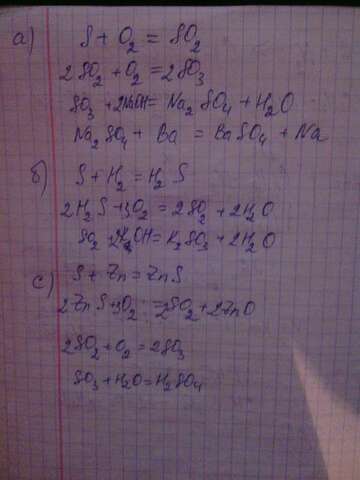 а) S + O₂ = SO₂
2SO₂ + O₂ = 2SO₃
SO₃ + 2NaOH = Na₂SO₄ + H₂O
Na₂SO₄ + Ba = BaSO₄ + Na
б) S + H₂ = H₂S
2H₂S + 3O₂ = 2SO₂ + 2H₂O
SO₂ + 2KOH = K₂SO₃ + 2H₂O
с) S + Zn = ZnS
2ZnS + 3O₂ = 2SO₂ + 2ZnO
2SO₂ + O₂ = 2SO₃
SO₃ + H₂O = H₂SO₄